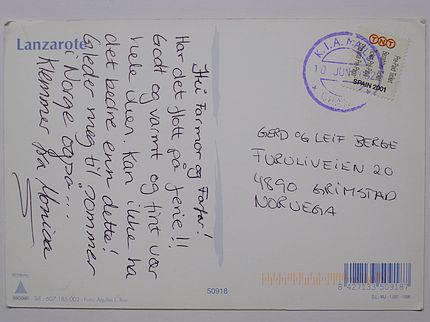 Lanzarote
Hei Farmor og Farfar!
Har det flott på ferie!!
Godt og varmt og fint vær
hele dien kan ikke ha
det bedre enn dette!
Gleder meg til sommer
i Norge også...
Klemmer fra Monica
K.I.A. MAIL
10 JUN
TNT
SPAIN 2001
GERD OG LEIF BERGE
FURULIVEIEN 20
4890 GRIMSTAD
NORUEGA
50918
8 427133 509187
Tel.: 607 185 002 - Foto: Aquiles L. Ros